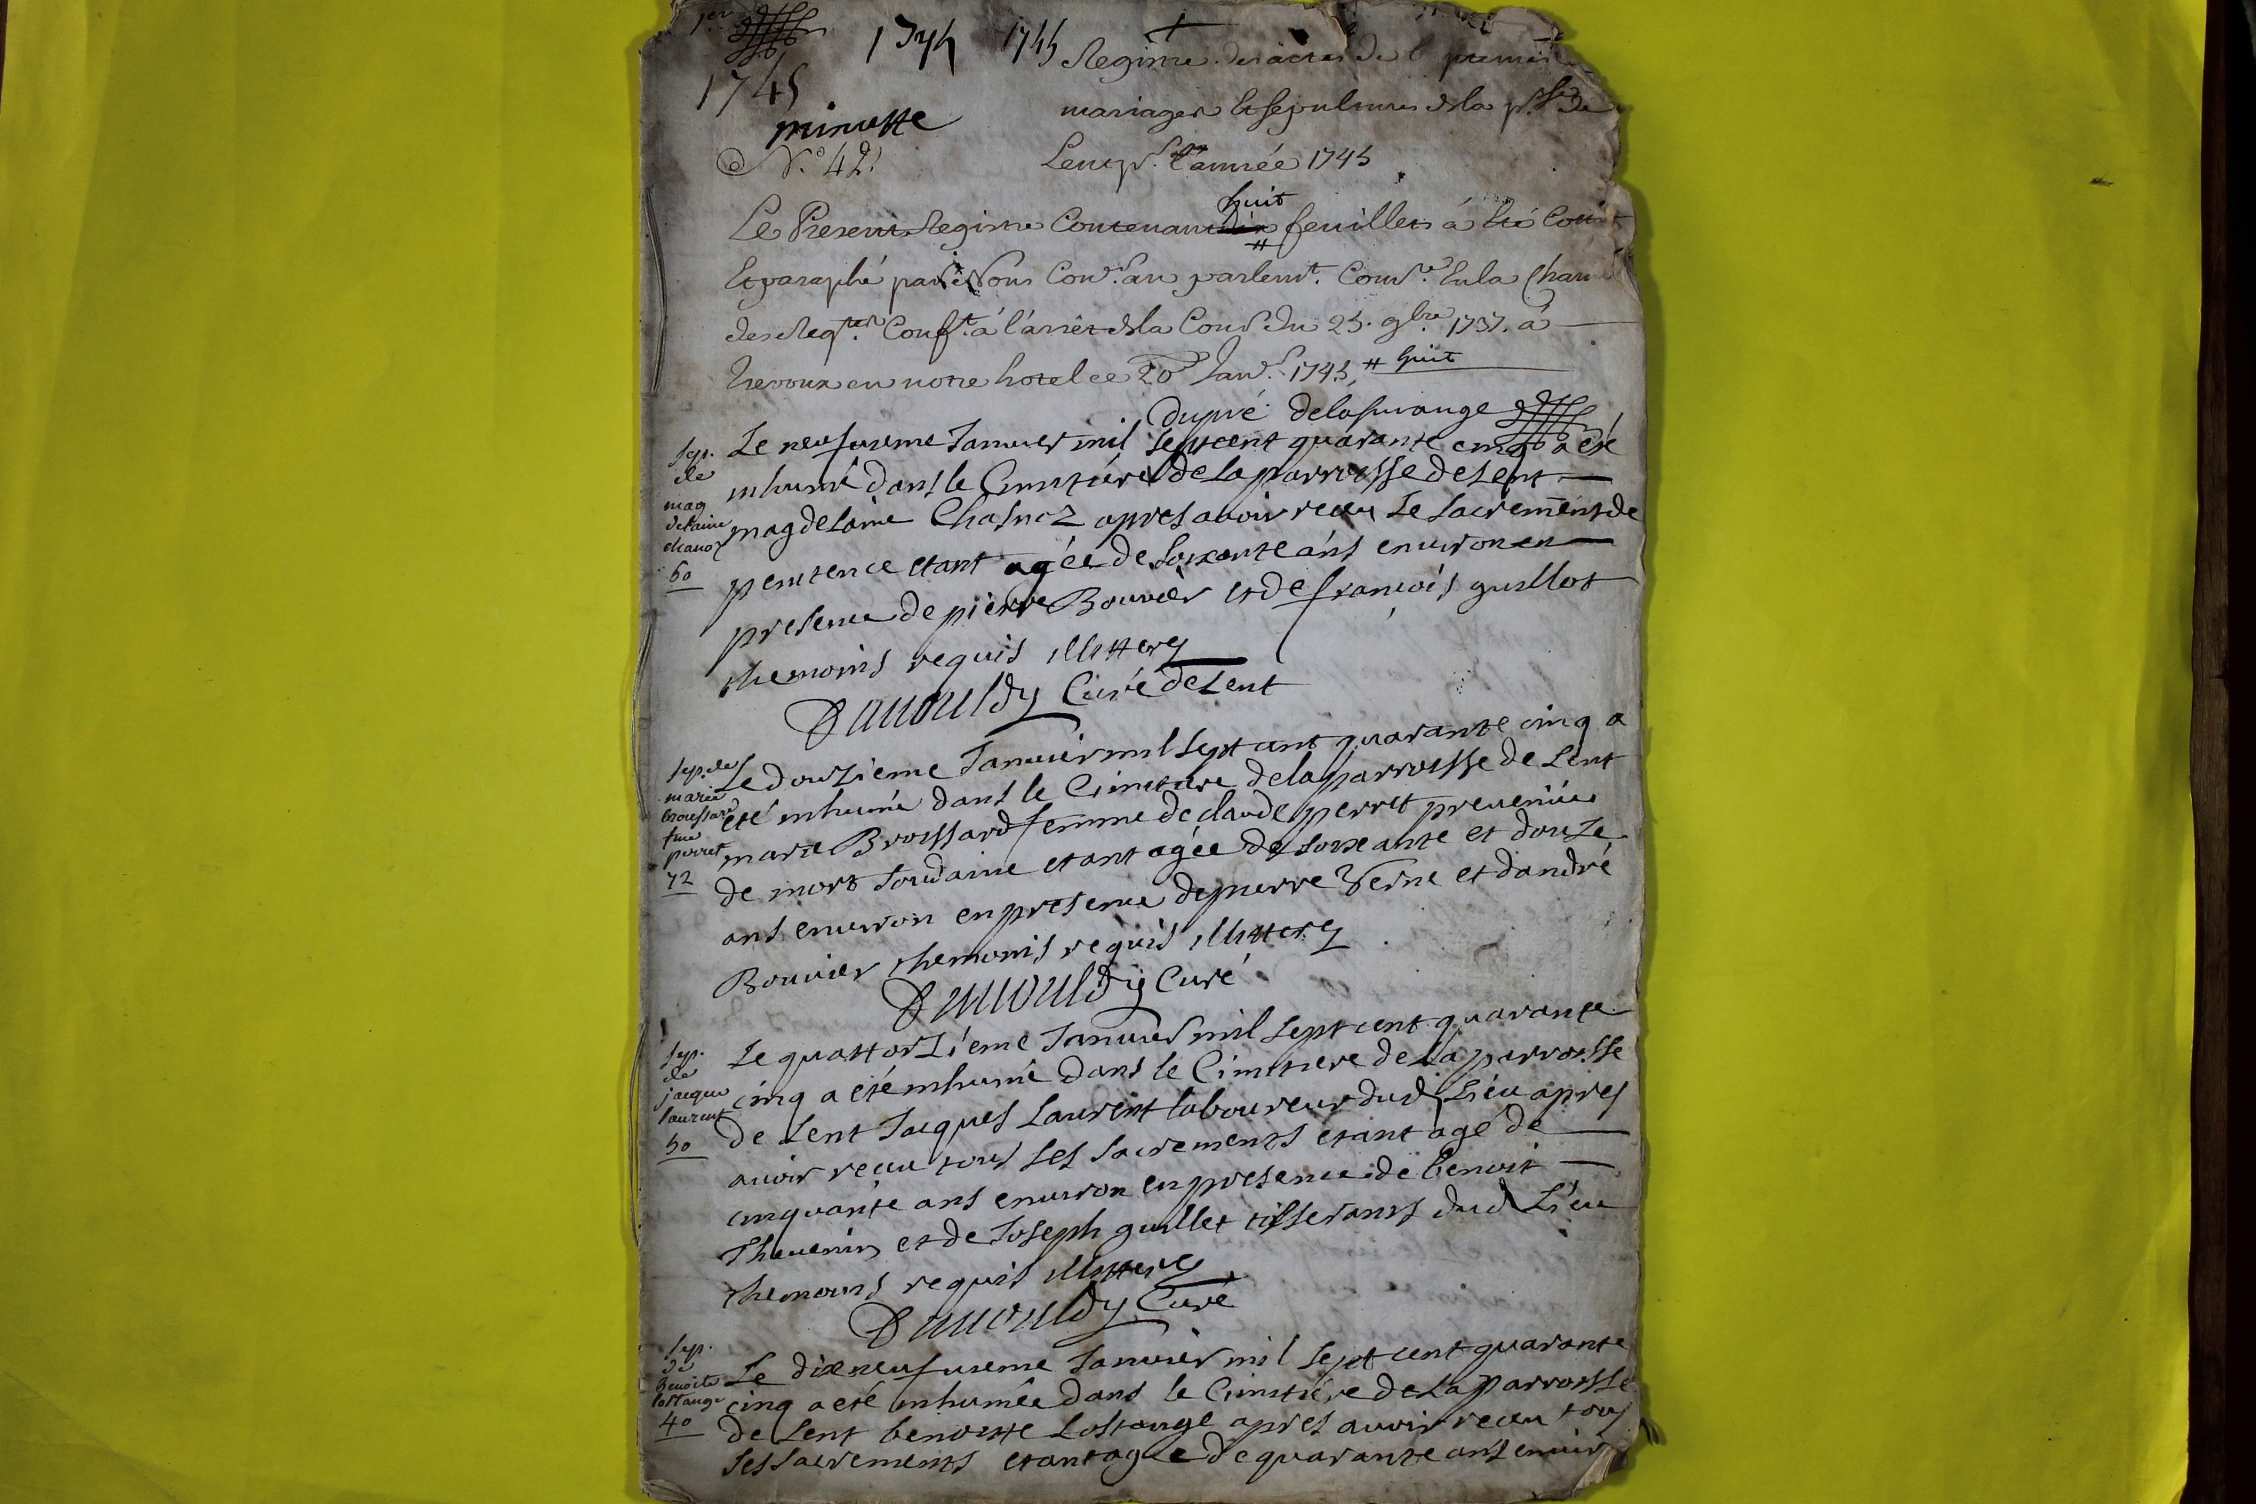 1er
1745 1745
1745
minutte
N.° 42.
Registre des actes de B premier
mariages et sepultures de la p.sse de
Lent pr. l'année 1745
Le Present Registre Contenant dix huit feuillets a été Cotté
et paraphé par Nous Con.er au parlem.t Comre. en la Cham
des Req.tes Conf.t à l'arrêt de la Cour du 25. 9bre 1737. à
Trevoux en notre hotel ce 20 Janv. 1745, # huit
dupré delagrange
sep. de magdelaine chanoz 60
Le neufuieme Januier mil sept cent quarante cinq a été
inhumé dans le Cimitiére de la parroisse de Lent
magdelaine Chasnoz apres avoir receu Le sacrement de
penitence etant agée de soixante ans environ en
presence de pierre Bouvier et de françois guillot
themoins requis illittery
Curé de Lent
sep. de marie broussard fme perret 72
Le douzieme Januier mil sept cent quarante cinq a
eté inhumé dans le Cimitiere de la parroisse de Lent
marie Broissard femme de claude perret prevenüe
de mort soudaine etant agée de soixante et douze
ans environ en presence de pierre Verne et d'andré
Bouvier themoins requis illittery
Curé
sep. de jacque laurent 50
Le quattorzieme Januier mil sept cent quarante
cinq a eté inhumé dans le Cimitiere de la parroisse
de Lent Jacques Laurent laboureur dud Lieu apres
avoir receu tous ses sacrements etant agé de
cinquante ans environ en presence de benoit
Thevenin et de Joseph guillet tisserants dud Lieu
themoins requis illittery
Curé
sep. de Benoite lostange 40
Le dixneufuieme Januier mil sept cent quarante
cinq a eté inhumée dans le Cimitiére de la parroisse
de Lent benoitte Lostange apres avoir receu tous
ses sacrements etant agée de quarante ans envir